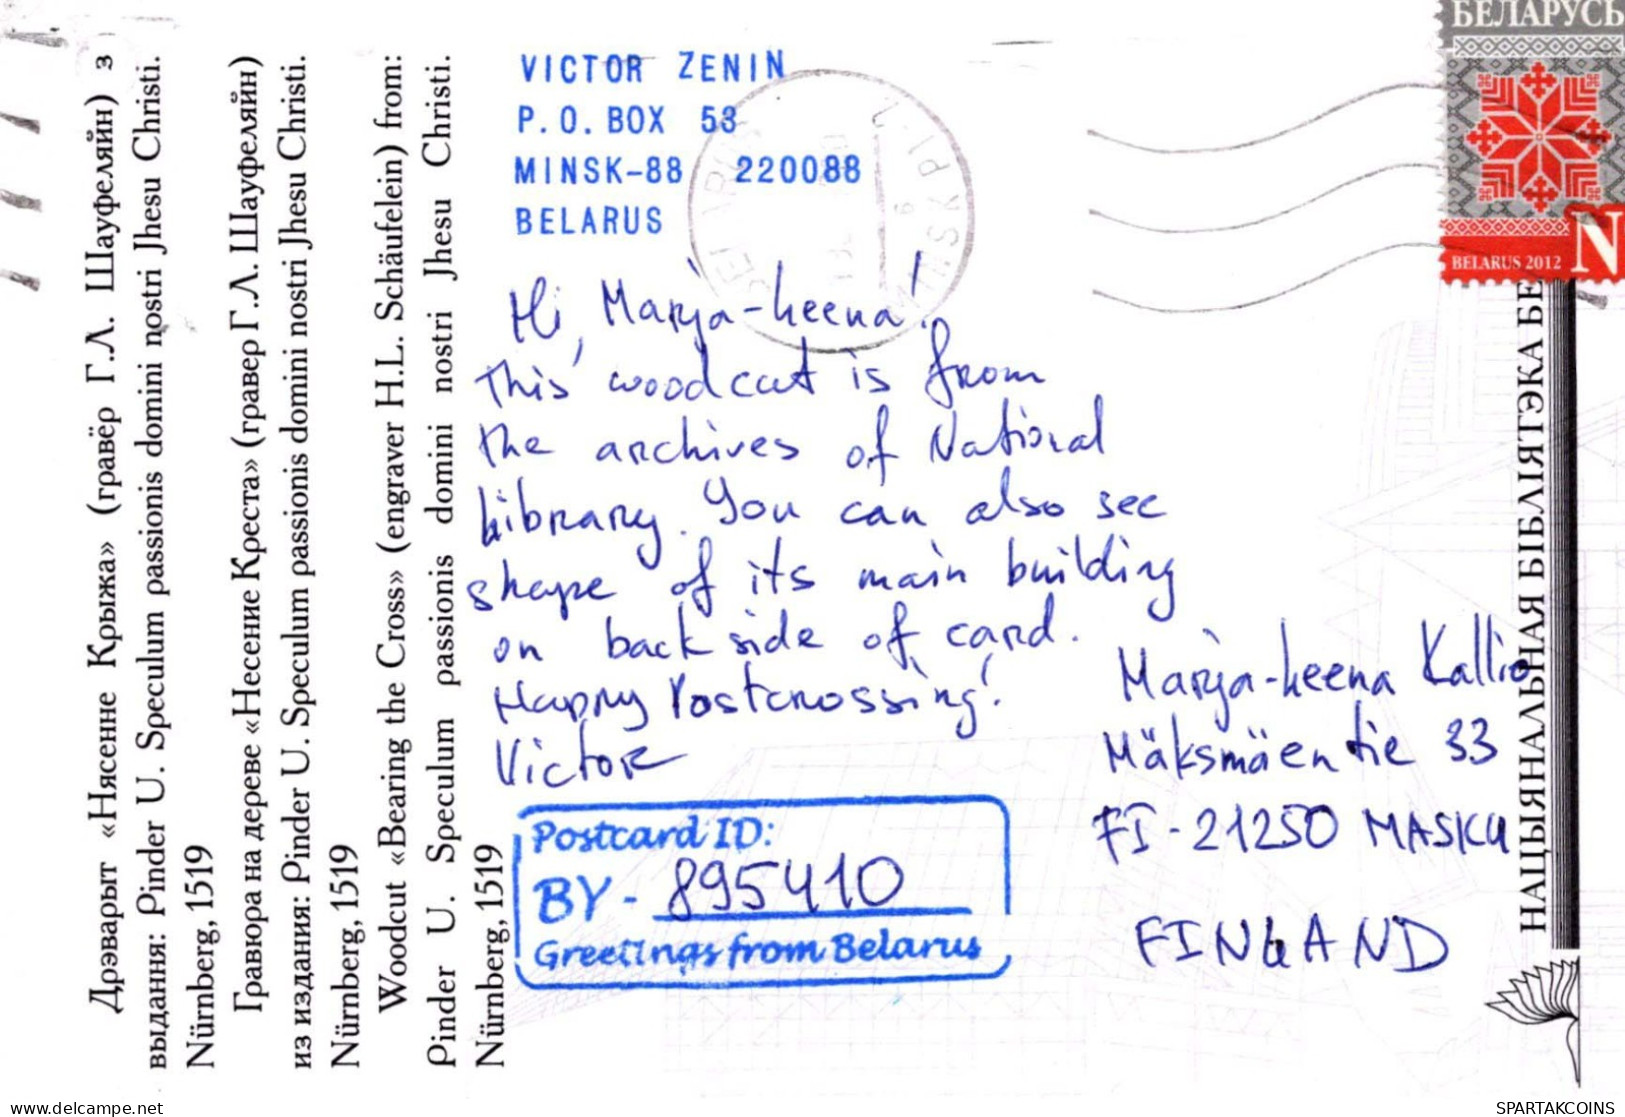 Дрэварыт «Нясенне Крыжа» (гравёр Г.Л. Шауфеляйн) з
выдання: Pinder U. Speculum passionis domini nostri Jhesu Christi.
Nürnberg, 1519
Гравюра на дереве «Несение Креста» (гравер Г.Л. Шауфеляйн)
из издания: Pinder U. Speculum passionis domini nostri Jhesu Christi.
Nürnberg, 1519
Woodcut «Bearing the Cross» (engraver H.L. Schäufelein) from:
Pinder U. Speculum passionis domini nostri Jhesu Christi.
Nürnberg, 1519
VICTOR ZENIN
P.O. BOX 53
MINSK-88 220088
BELARUS
Hi, Marja-Leena!
This woodcut is from
the archives of National
Library. You can also see
shape of its main building
on back side of card.
Happy Postcrossing!
Victor
Postcard ID:
BY - 895410
Greetings from Belarus
БЕЛАРУСЬ
N
BELARUS 2012
Marja-Leena Kallio
Mäksmäentie 33
FI-21250 MASKU
FINLAND
НАЦЫЯНАЛЬНАЯ БІБЛІЯТЭКА БЕ
delcampe.net
SPARTAKCOINS